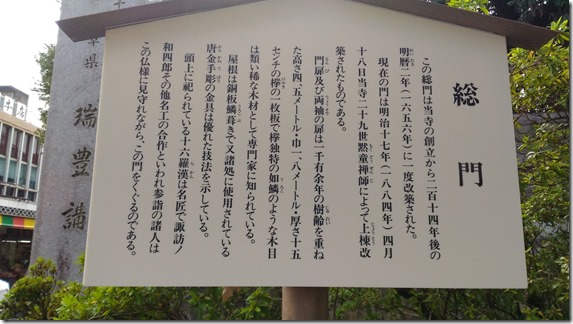 総門
この総門は当寺の創立から二百十四年後の
明暦二年(一六五六年)に一度改築された。
現在の門は明治十七年(一八八四年)四月
十八日当寺二十九世黙童禅師によって上棟改
築されたものである。
門扉及び両袖の扉は一千有余年の樹齢を重ね
た高さ四、五メートル・巾一、八メートル・厚さ十五
センチの欅の一枚板で欅独特の如鱗のような木目
は類い稀な木材として専門家に知られている。
屋根は銅板鱗葺きで又諸処に使用されている
唐金手彫の金具は優れた技法を示している。
頭上に祀られている十六羅漢は名匠で諏訪ノ
和四郎その他名工の合作といわれ参詣の諸人は
この仏様に見守れながら、この門をくぐるのである。
県
瑞豊講